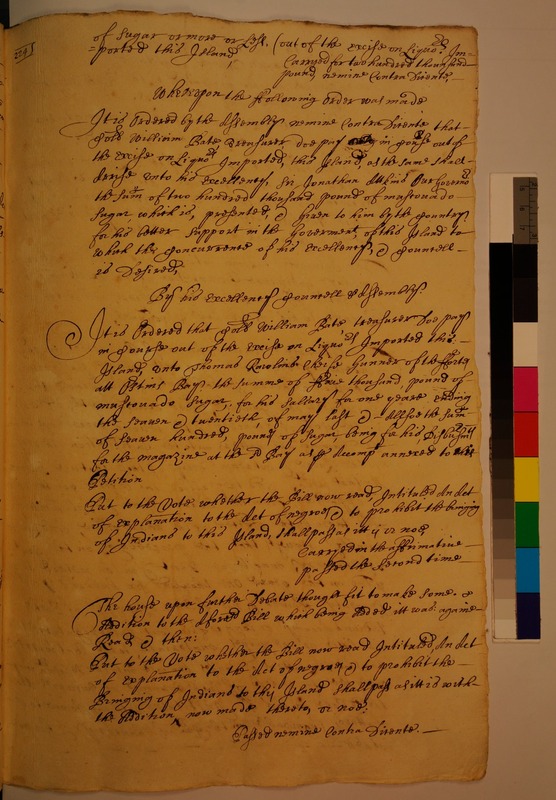 of Sugar or more or Less. (out of the excise on Liquo.rs Im=
=ported this Island,
Carryed for two hundred thousand
pound, nemine Contra Dicente,
274
Whereupon the following order was made
It is Ordered by the Assembly nemine Contra Dicente that
William Bate treasurer doe pay in course out of
the excise on Liquo.rs Imported, this Island, as the same shall
Arise unto his excellency, Sr. Jonathan Atkins Our Governo.r
the Sum of two hundred thousand pound of muscovado
Sugar which is, presented, & Given to him by the Country
for his better Support in the Goverment, of this Island to
which the Concurrence of his excellency, & Councell
is Desired,
By his excellency Councell & Assembly
It is Ordered that William Bate, treasurer doe pay
in Course out of the excise on Liquo.rs Imported this
Island, unto Thomas cheife Gunner of the fforts
att Bay the summe of thousand, pound of
muscovado Sugar, for his Sallary for one yeare ending
the Seaven & twentieth, of may last & Allsoe the Sum
of Seaven hundred, pound of Sugar being for his
for the magazine at the Bay as p accomp annexed to
Petition
Put to the Vote whether the Bill now read, Intituled An Act
of explanation to the Act of negroes & to prohibit the bringing
of Indians to this Island, shall pass as itt is or noe,
Carryed in the affirmative
passed the second time
The house upon further Debate thought fit to make some.
Addition to the Afores.d Bill which being Added itt was againe
Read & then:
Put to the Vote whether the Bill now read Intituled, An Act
of explanation to the Act of negroes & to prohibit the
Bringing of Indians to this Island shall pass as itt is with
the Addition, now made thereto, or noe.
Passed nemine Contra Dicente.